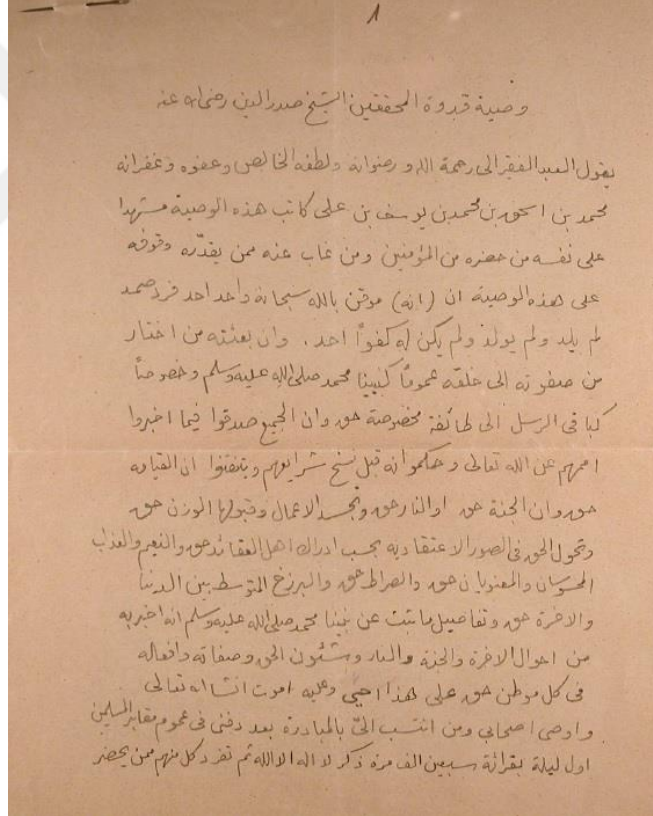 ١
وصية قدوة المحققين الشيخ صدر الدين رضى الله عنه
يقول العبد الفقير الى رحمة الله و رضوانه ولطفه الخالص وعفوه وغفرانه
محمد بن اسحق بن محمد بن يوسف بن على كاتب هذه الوصية مستهدا
على نفسه من حضره من المؤمنين ومن غاب عنه ممن يقدّره وقوفه
على هذه الوصية ان (انه) موقن بالله سبحانه واحد احد فرد صمد
لم يلد ولم يولد ولم يكن له كفواً احد . وان بعثته من اختار
من صفوته الى خلقه عموماً كنبينا محمد صلى الله عليه وسلم وخصوصاً
كباقى الرسل الى طائفة مخصوصة حق وان الجميع صدقوا فيما اخبروا
اممهم عن الله تعالى و حكموا انه قبل نسخ شرايعهم و ان القيامه
حق وان الجنة حق او النار حق وتجسد الاعمال وقبولها الوزن حق
وتحول الحق فى الصور الاعتقاديه بحسب ادراك اهل العقائد حق والنعيم والعذاب
المحسوسان والمعنويان حق والصراط حق والبرزخ المتوسط بين الدينا
والاخرة حق وتفاصيل ما ثبت عن نبينا محمد صلى الله عليه وسلم انه اخبر به
من احوال الاخرة والجنة والنار وشئون الحق وصفاته وافعاله
فى كل موطن حق على هذا احيى وعليه اموت انشا الله تعالى
واوصى اصحابى ومن انتسب الىّ بالمبادرة بعد دفنى فى عموم مقابر المسلمين
اول ليلة بقرائة سبعين الف مرة ذكر لا اله الا الله ثم تفرد كل منهم ممن يحضر